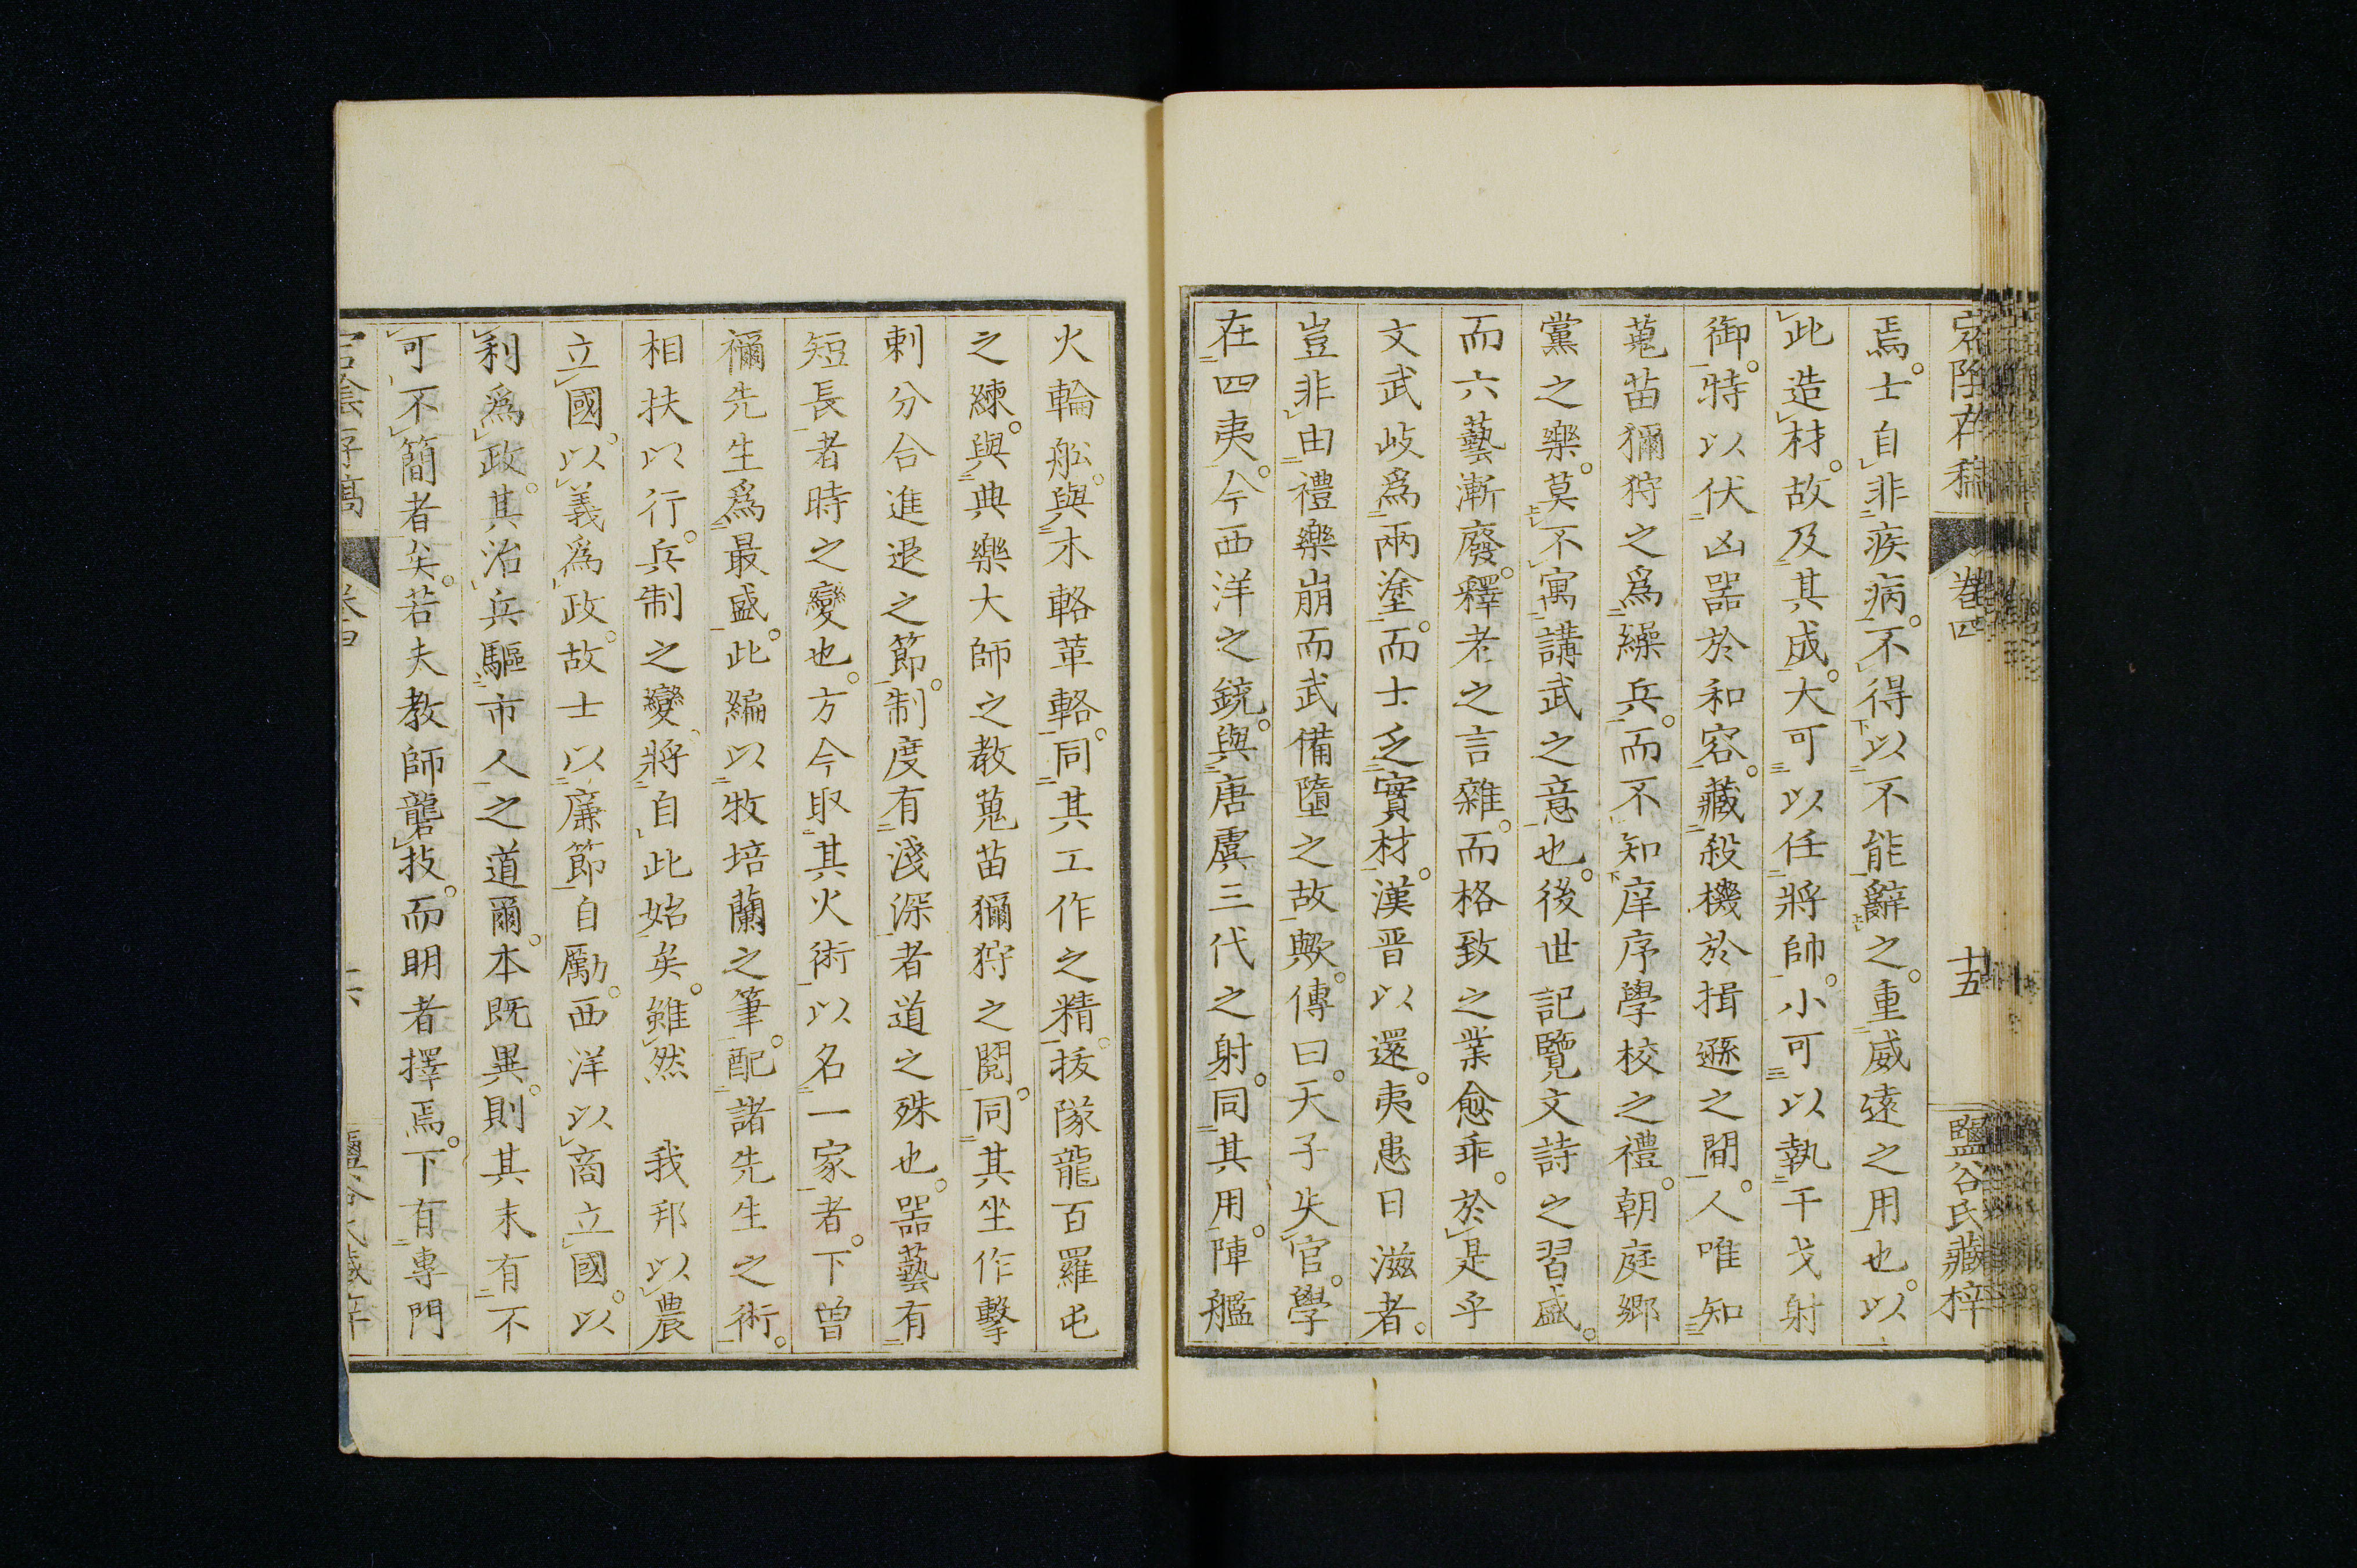 宕陰存稿 卷四 十五 鹽谷氏藏梓
焉。士自非疾病。不得以不能辭之。重威遠之用也。以
此造材。故及其成。大可以任將帥。小可以執干戈射
御。特以伏凶器於和容。藏殺機於揖遜之間。人唯知
蒐苗獮狩之爲繰兵。而不知庠序學校之禮。朝庭鄉
黨之樂。莫不寓講武之意也。後世記覽文詩之習盛。
而六藝漸廢。釋老之言雜。而格致之業愈乖。於是乎
文武岐爲兩塗。而士乏實材。漢晋以還。夷患日滋者。
豈非由禮樂崩而武備墮之故歟。傳曰。天子失官。學
在四夷。今西洋之銃。與唐虞三代之射。同其用。陣艦
火輪舩。與木輅革輅。同其工作之精。拔隊龍百羅屯
之練。與典樂大師之教蒐苗獮狩之閱。同其坐作擊
刺分合進退之節。制度有淺深者道之殊也。器藝有
短長者時之變也。方今取其火術以名一家者。下曽
禰先生爲最盛。此編以牧培蘭之筆。配諸先生之術。
相扶以行。兵制之變將自此始矣。雖然 我邦以農
立國。以義爲政。故士以廉節自勵。西洋以商立國。以
利爲政。其治兵驅市人之道爾。本既異。則其末有不
可不簡者矣。若夫教師礱技。而明者擇焉。下有專門